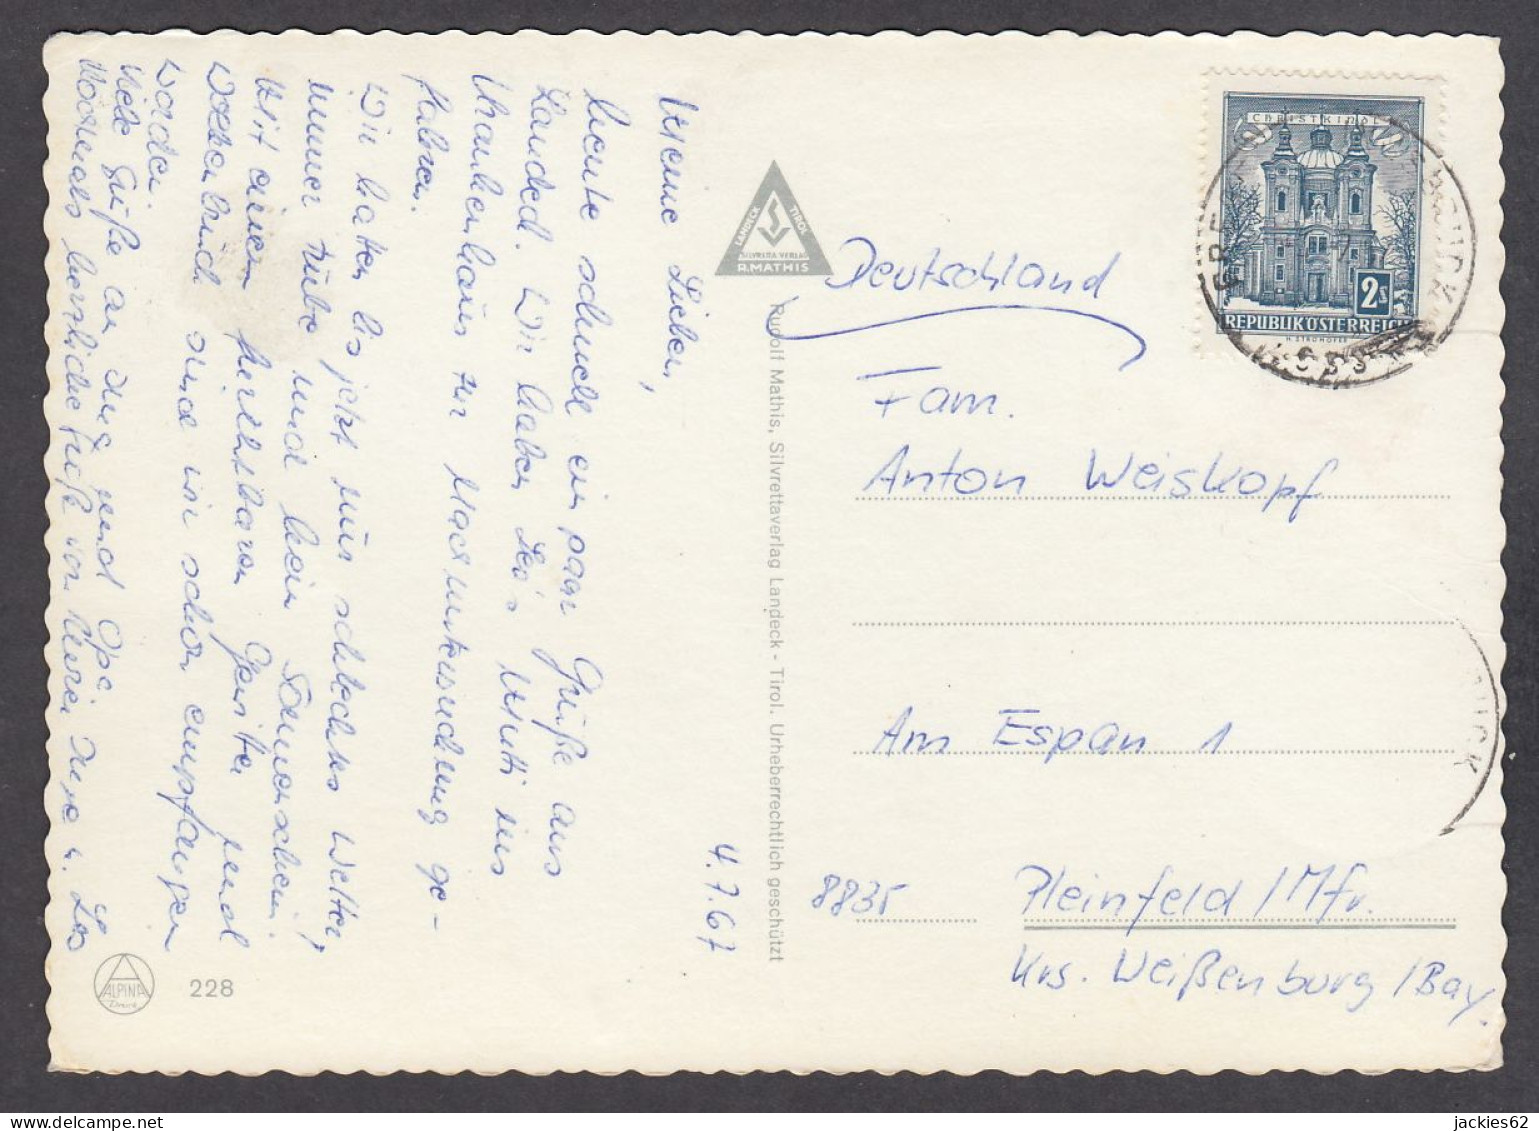 4.7.67
Meine Lieben,
heute schnell ein paar Grüße aus
Landeck. Wir haben Leo's Mutti ins
Krankenhaus zur Nachuntersuchung ge-
fahren.
Wir hatten bis jetzt nur schlechtes Wetter,
immer trübe und kein Sonnenschein.
Mit einem furchtbaren Gewitter und
Wolkenbruch sind wir schon empfangen
worden.
Viele Grüße an und Opa
Nochmals herzliche Grüße von Eurer u. Leo
ALPINA
Druck
228
LANDECK
TIROL
SILVRETTA VERLAG
R. MATHIS
Rudolf Mathis, Silvrettaverlag Landeck - Tirol. Urheberrechtlich geschützt
CHRISTKINDL
2s
REPUBLIK ÖSTERREICH
H. STROHOFER
Deutschland
Fam.
Anton Weiskopf
Am Espan 1
8835 Pleinfeld / Mfr.
Krs. Weißenburg / Bay.
jackies62